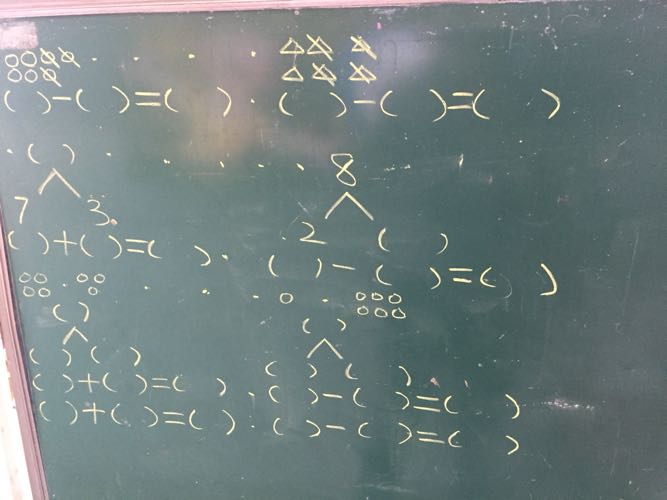 ( )-( )=( ) ( )-( )=( )
( ) 8
7 3 2 ( )
( )+( )=( ) ( )-( )=( )
( ) ( )
( ) ( ) ( ) ( )
( )+( )=( ) ( )-( )=( )
( )+( )=( ) ( )-( )=( )